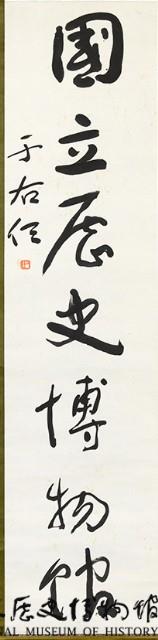 國立歷史博物館
于右任
歷史博物館
AL MUSEUM OF HISTORY